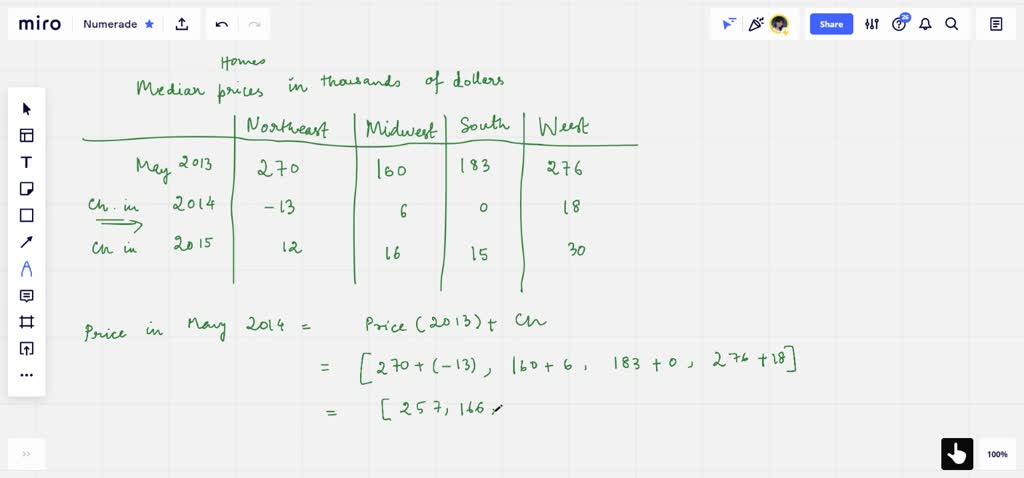 miro Numerade Share 26
Homes
Median prices in thousands of dollars
Northeast Midwest South West
May 2013 270 160 183 276
Ch. in 2014 -13 6 0 18
Ch in 2015 12 16 15 30
Price in May 2014 = Price (2013) + Ch
= [270 + (-13), 160 + 6, 183 + 0, 276 + 18]
= [257, 166,
100%